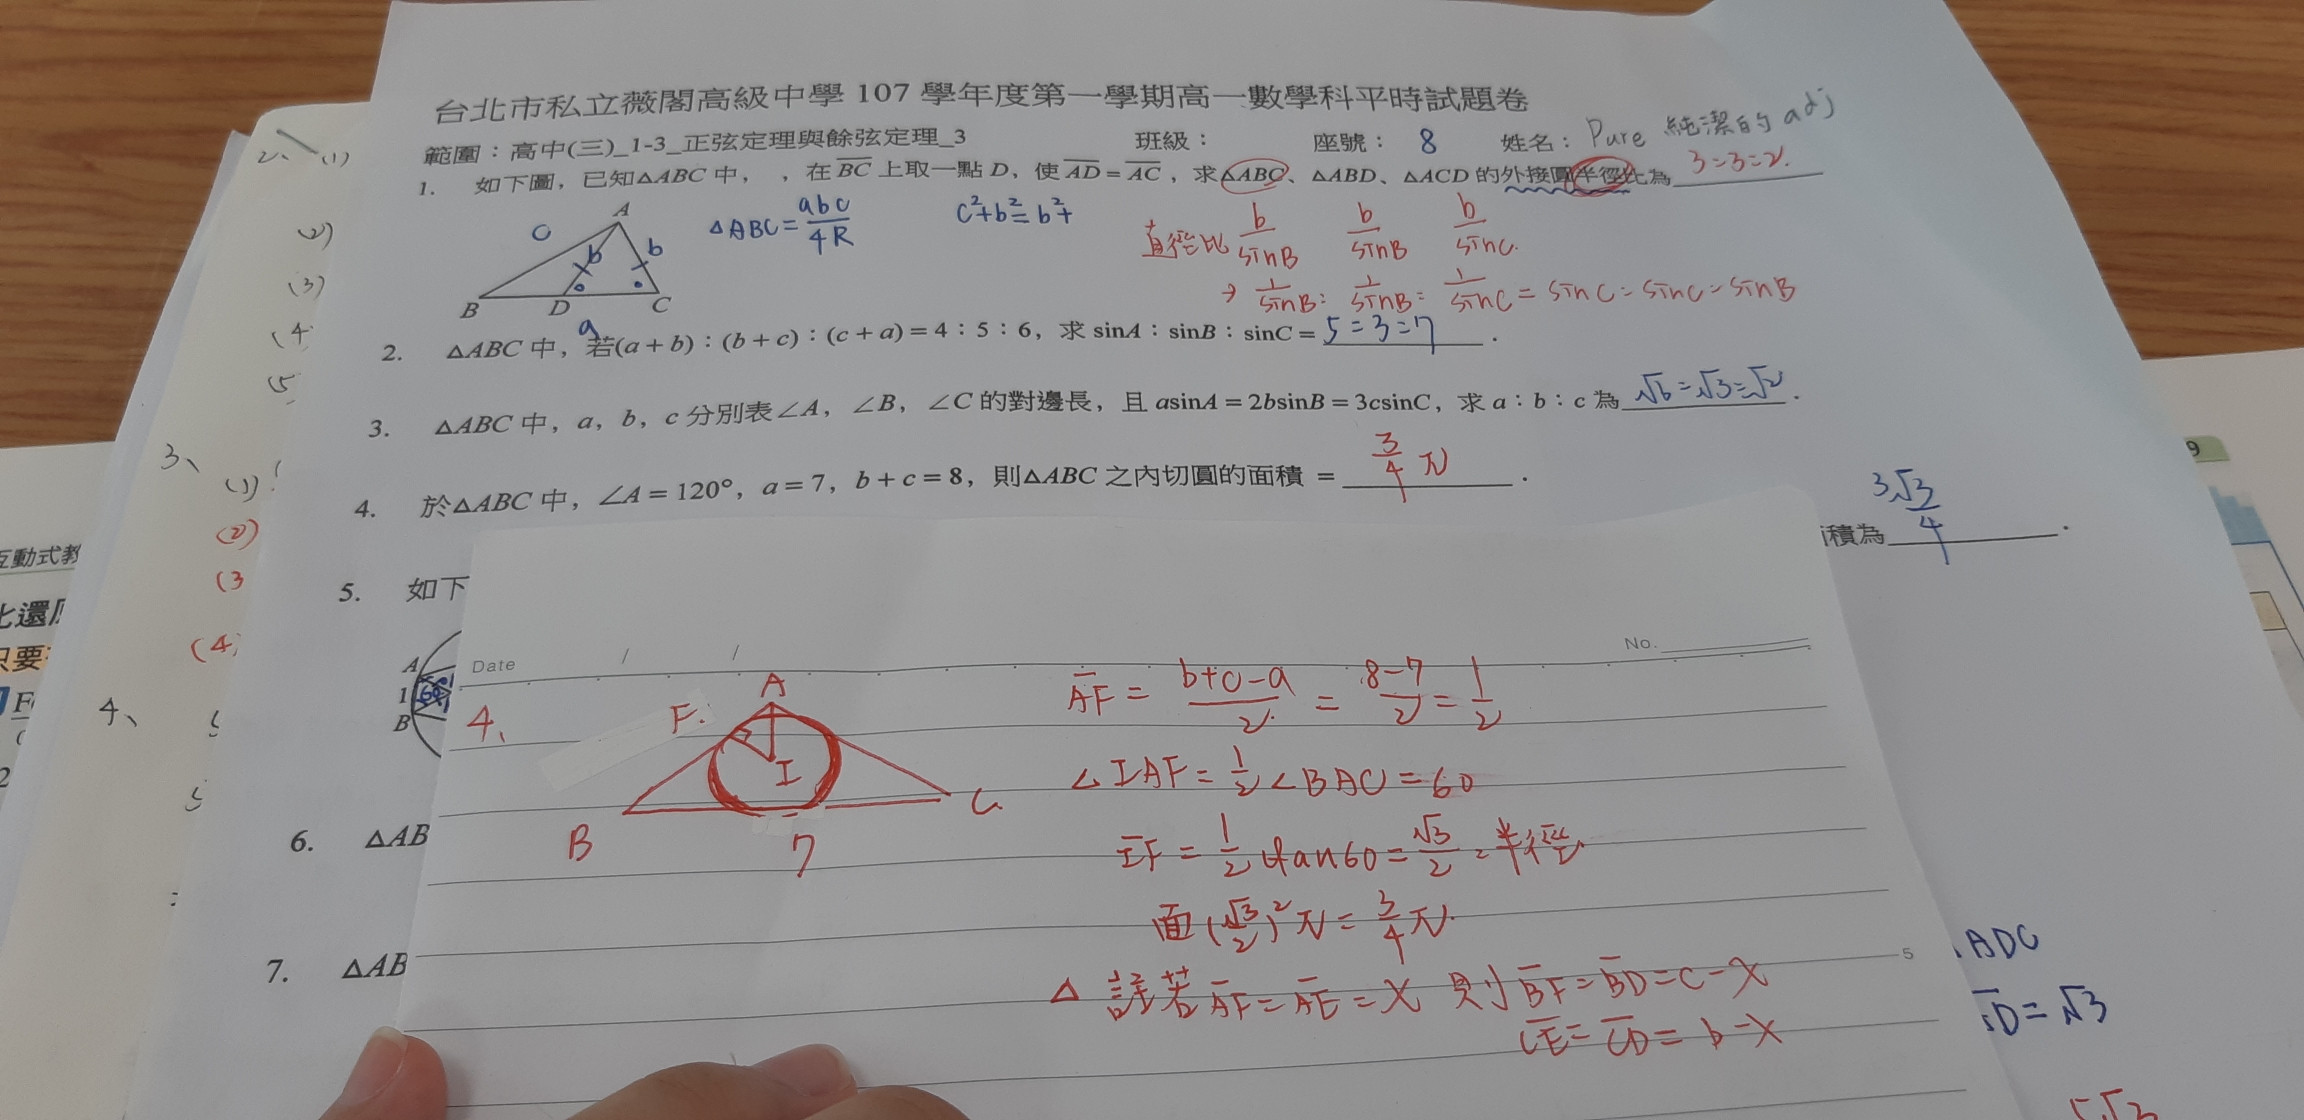 台北市私立薇閣高級中學 107 學年度第一學期高一數學科平時試題卷
範圍：高中(三)_1-3_正弦定理與餘弦定理_3 班級： 座號： 8 姓名： Pure 純潔的 adj
1. 如下圖，已知△ABC 中， ，在 BC 上取一點 D，使 AD = AC，求△ABC、△ABD、△ACD 的外接圓半徑比為 3:3:2.
A
c b b
B D C
a
△ABC = abc/4R
c²+b²=b²+
直徑比 b/sinB b/sinB b/sinC.
→ 1/sinB : 1/sinB : 1/sinC = sinC : sinC : sinB
2. △ABC 中，若(a+b)：(b+c)：(c+a)=4：5：6，求 sinA：sinB：sinC= 5:3:7 .
3. △ABC 中，a，b，c 分別表∠A，∠B，∠C 的對邊長，且 asinA=2bsinB=3csinC，求 a：b：c 為 √6:√3:√2 .
4. 於△ABC 中，∠A=120°，a=7，b+c=8，則△ABC 之內切圓的面積 = 3/4 π .
積為 3√3/4 .
5. 如下
A
1 60°
B
6. △AB
7. △AB
2、(1)
(2)
(3)
(4
(5
3、
(1)
(2)
(3
(4)
4、
互動式教
只要
9
Date / / No.
4、
A
F.
I
B 7 C
AF = (b+c-a)/2 = (8-7)/2 = 1/2
∠IAF = 1/2 ∠BAC = 60
IF = 1/2 tan60 = √3/2 = 半徑
面 (√3/2)² π = 3/4 π
△ 註若 AF = AE = X 則 BF = BD = c-X
CE = CD = b-X
5
ADC
D = √3
5√3